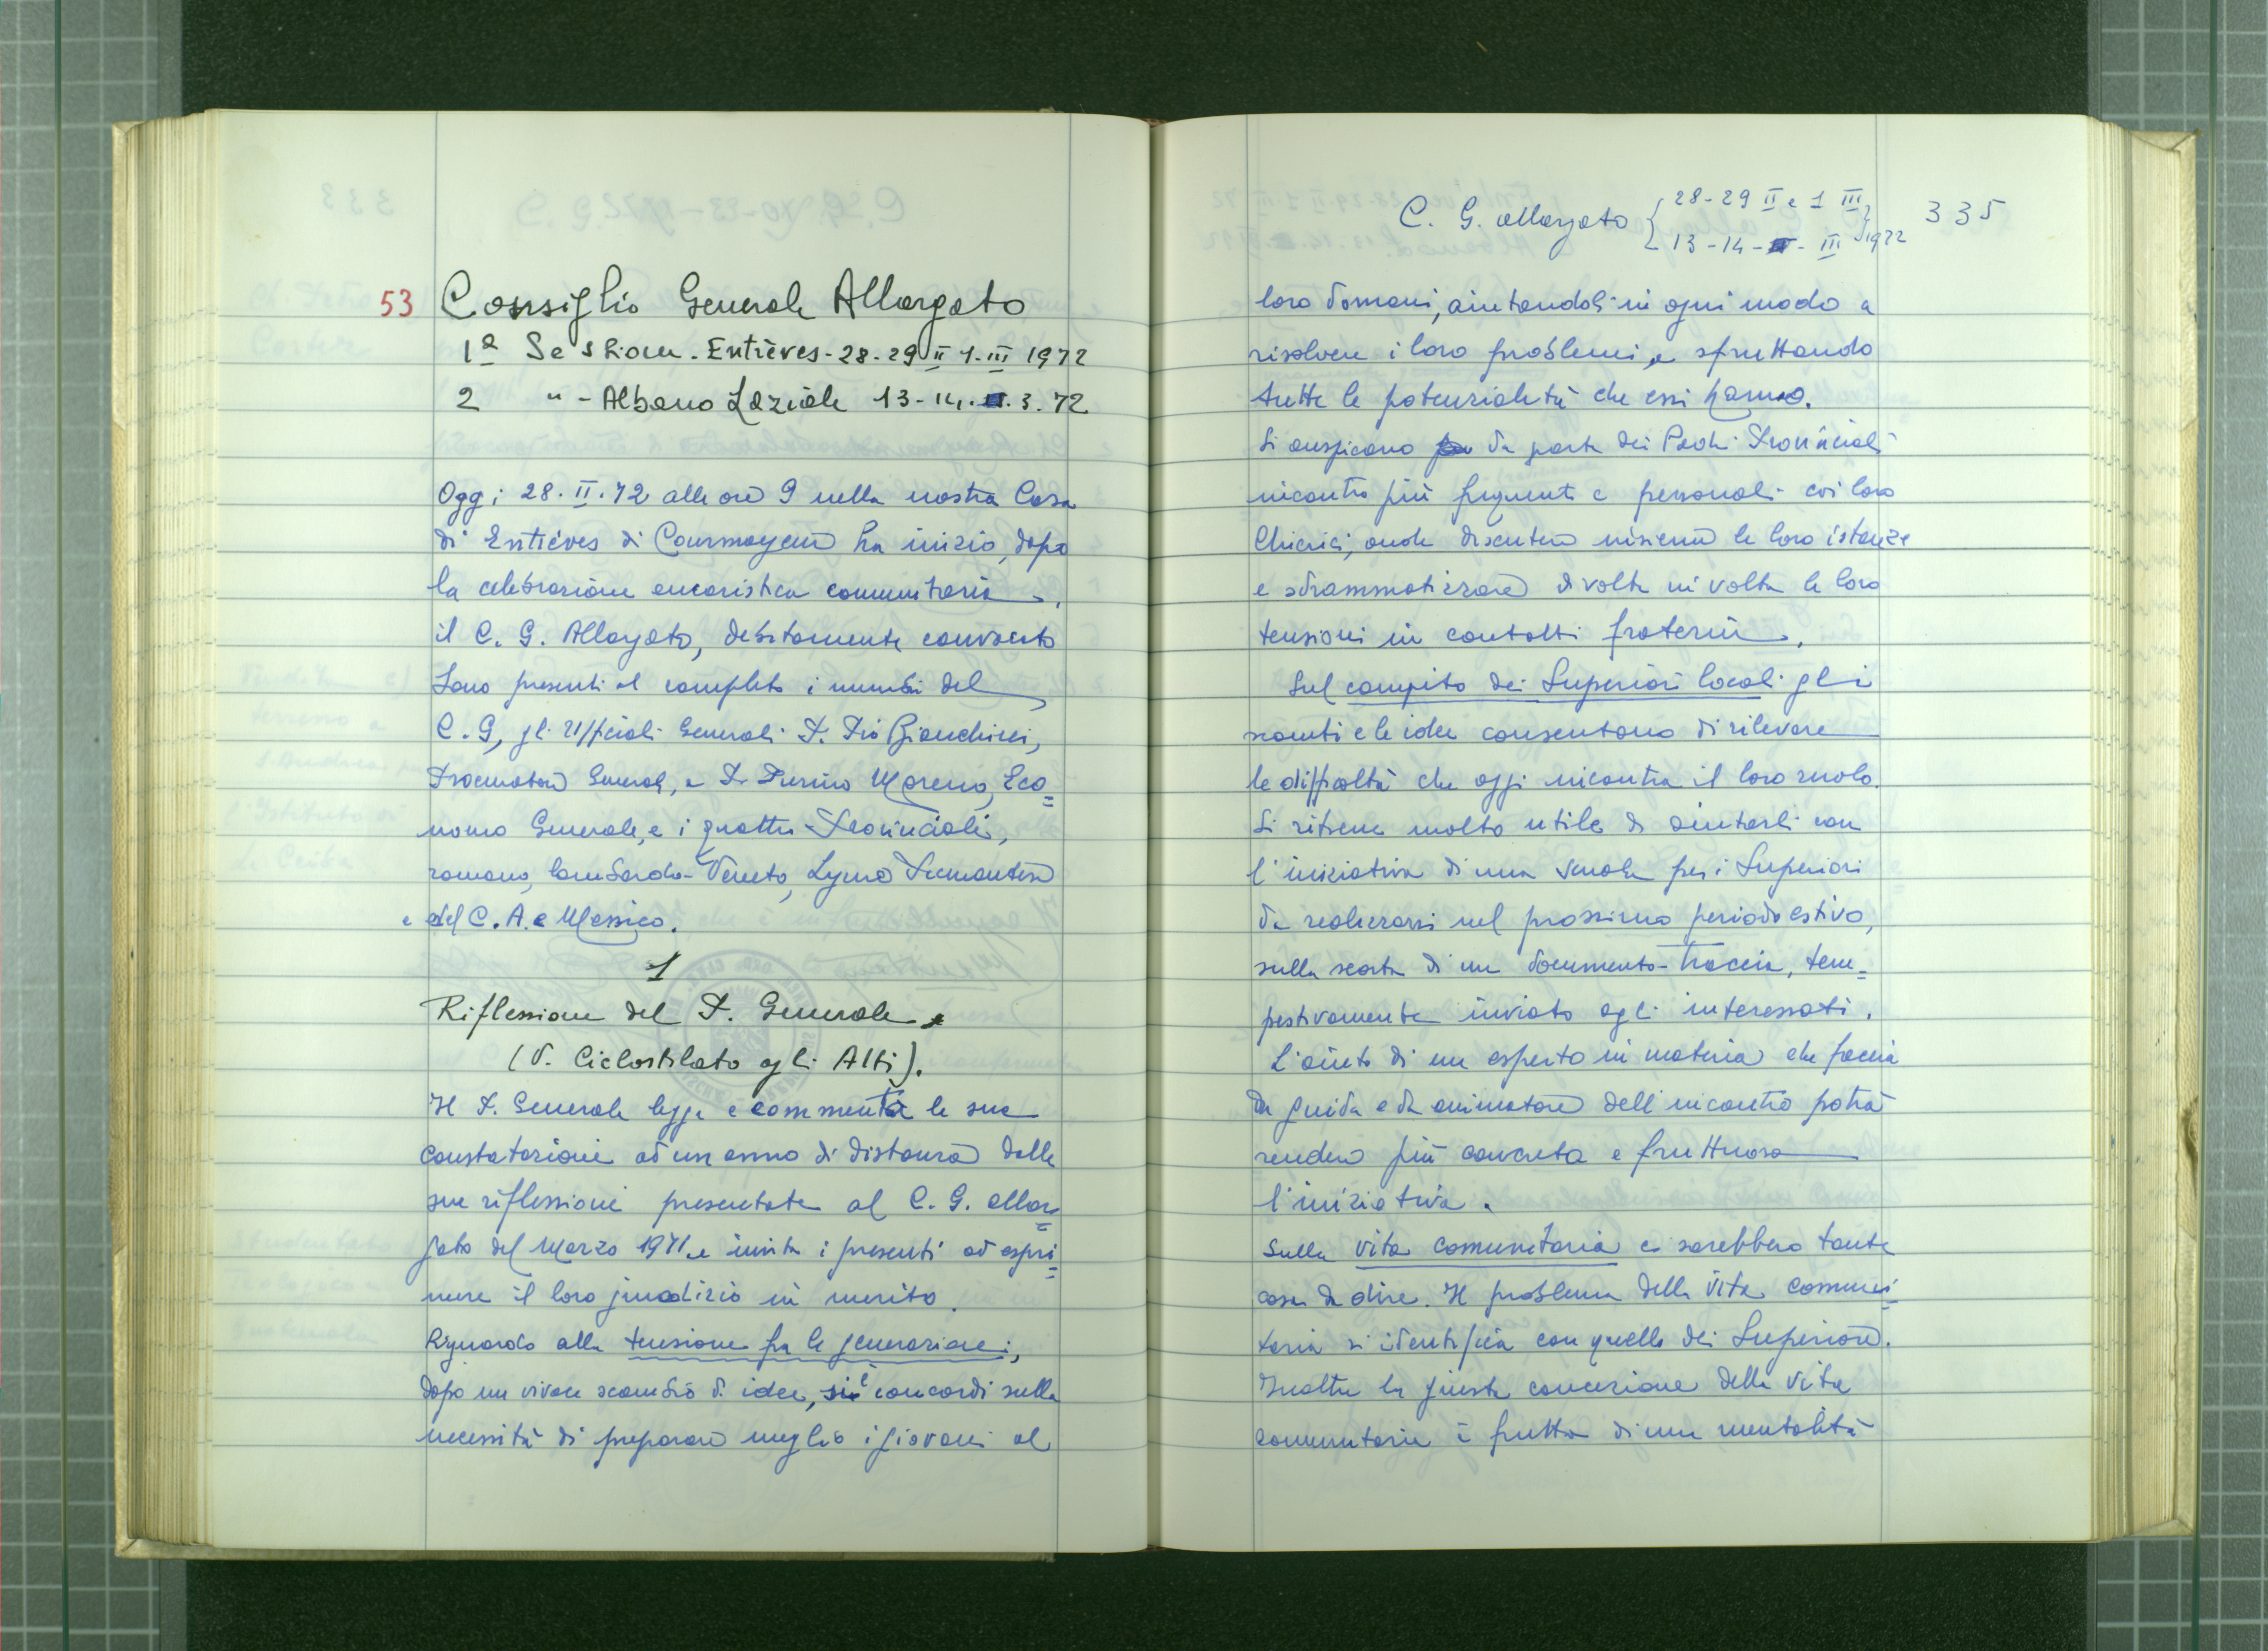 53 Consiglio Generale Allargato
1ª Sessione. Entrèves - 28-29 II 1. III 1972
2 " - Albano Laziale 13-14. .3. 72
Oggi 28. II. 72 alle ore 9 nella nostra Casa
di Entrèves di Courmayeur ha inizio, dopo
la celebrazione eucaristica comunitaria,
il C. G. Allargato, debitamente convocato
Sono presenti al completo i membri del
C. G, gli Ufficiali Generali P. Pio Bianchini,
Procuratore Generale, e P. Pierino Moreno, Eco=
nomo Generale, e i quattro Provinciali,
romano, lombardo-Veneto, Ligure Piemontese
e del C. A. e Messico.
1
Riflessione del P. Generale
(V. Ciclostilato agli Atti).
Il P. Generale legge e commenta le sue
constatazioni ad un anno di distanza dalle
sue riflessioni presentate al C. G. allar=
gato del Marzo 1971 e invita i presenti ad espri=
mere il loro giudizio in merito.
Riguardo alla tensione fra le generazioni,
dopo un vivace scambio di idee, si è concordi sulla
necessità di preparare meglio i giovani al
C. G. allargato { 28-29 II e 1 III } 335
13-14- - III 1972
loro domani, aiutandoli in ogni modo a
risolvere i loro problemi, e sfruttando
tutte le potenzialità che essi hanno.
Si auspicano da parte dei Padri Provinciali
incontri più frequenti e personali coi loro
Chierici, onde discutere insieme le loro istanze
e sdrammatizzare di volta in volta le loro
tensioni in contatti fraterni.
Sul compito dei Superiori locali gli
scambi e le idee consentono di rilevare
le difficoltà che oggi incontra il loro ruolo.
Si ritiene molto utile di aiutarli con
l'iniziativa di una scuola per i Superiori
da realizzarsi nel prossimo periodo estivo,
sulla scorta di un documento-traccia, tem=
pestivamente inviato agli interessati.
L'aiuto di un esperto in materia che faccia
da guida e da animatore dell'incontro potrà
rendere più concreta e fruttuosa
l'iniziativa.
Sulla vita comunitaria ci sarebbero tante
cose da dire. Il problema della vita comuni=
taria si identifica con quello dei Superiori.
Inoltre la giusta concezione della vita
comunitaria è frutto di una mentalità